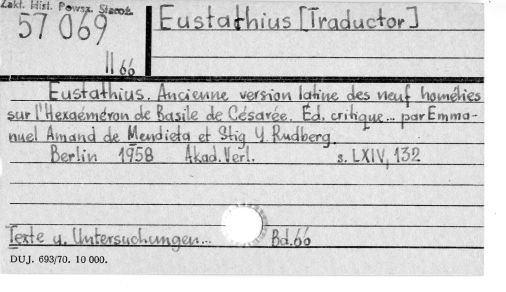 Zakł. Hist. Powsz. Staroż.
57 069
II 66
Eustathius [Traductor]
Eustathius. Ancienne version latine des neuf homélies
sur l'Hexaéméron de Basile de Césarée. Éd. critique... par Emma-
nuel Amand de Mendieta et Stig Y. Rudberg.
Berlin 1958 Akad. Verl. s. LXIV, 132
Texte u. Untersuchungen... Bd. 66
DUJ. 693/70. 10 000.